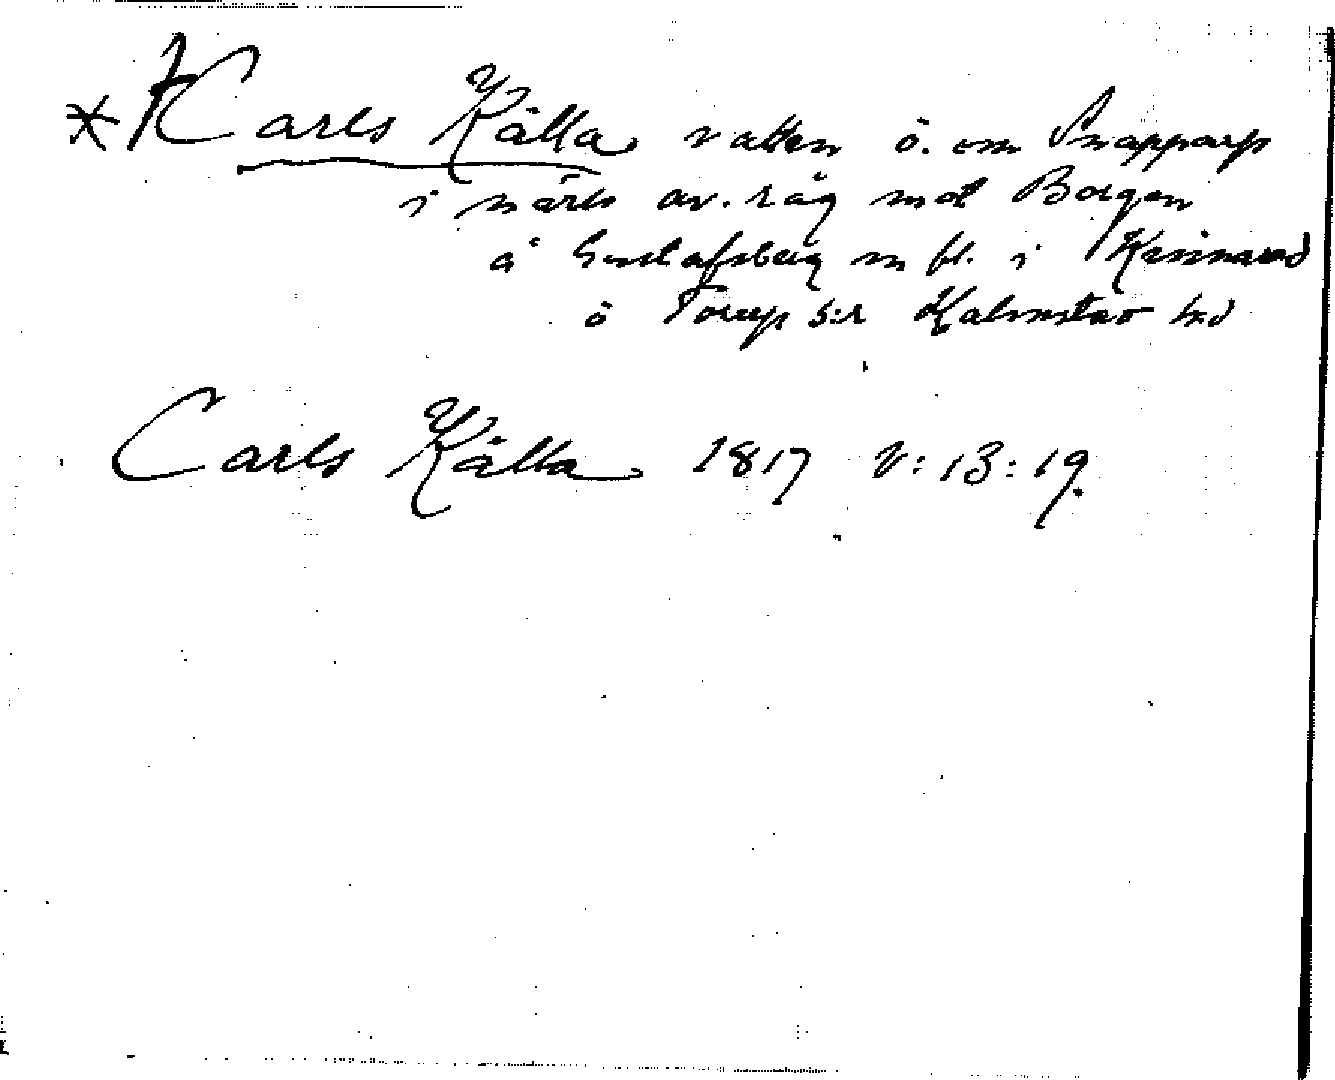 * Carls Källa vatten ö. om Snapparp
i närh av. råg mot Borgen
å Gustafsberg m fl. i Kinnared
ö Torup s:n Halmstad hd
Carls Källa 1817 V:13:19.